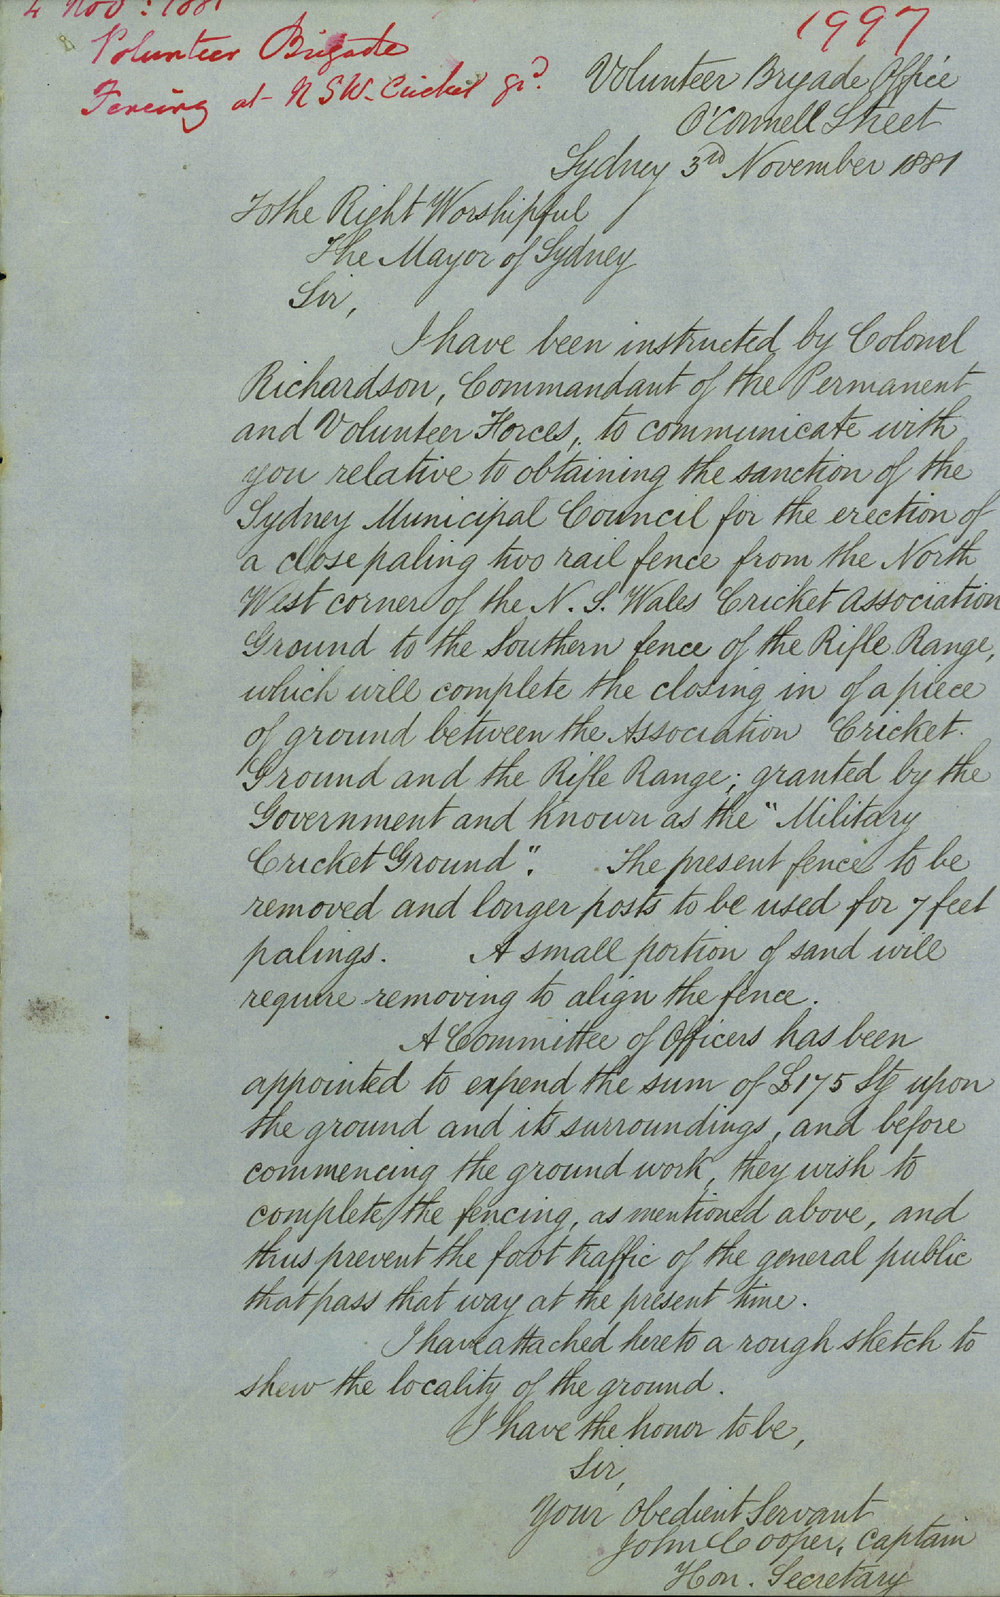 4 Nov: 1881
Volunteer Brigade
Fencing at N S W. Cricket Gr<sup>d</sup>.
1997
Volunteer Brigade Office
O'Connell Street
Sydney 3<sup>rd</sup> November 1881
To the Right Worshipful
The Mayor of Sydney
Sir,
I have been instructed by Colonel
Richardson, Commandant of the Permanent
and Volunteer Forces, to communicate with
you relative to obtaining the sanction of the
Sydney Municipal Council for the erection of
a close paling two rail fence from the North
West corner of the N. S. Wales Cricket Association
Ground to the Southern fence of the Rifle Range,
which will complete the closing in of a piece
of ground between the Association Cricket
Ground and the Rifle Range; granted by the
Government and known as the "Military
Cricket Ground". The present fence to be
removed and longer posts to be used for 7 feet
palings. A small portion of sand will
require removing to align the fence.
A Committee of Officers has been
appointed to expend the sum of £175 Stg upon
the ground and its surroundings, and before
commencing the ground work, they wish to
complete the fencing, as mentioned above, and
thus prevent the foot traffic of the general public
that pass that way at the present time.
I have attached hereto a rough sketch to
shew the locality of the ground.
I have the honor to be,
Sir,
Your Obedient Servant
John Cooper, Captain
Hon. Secretary